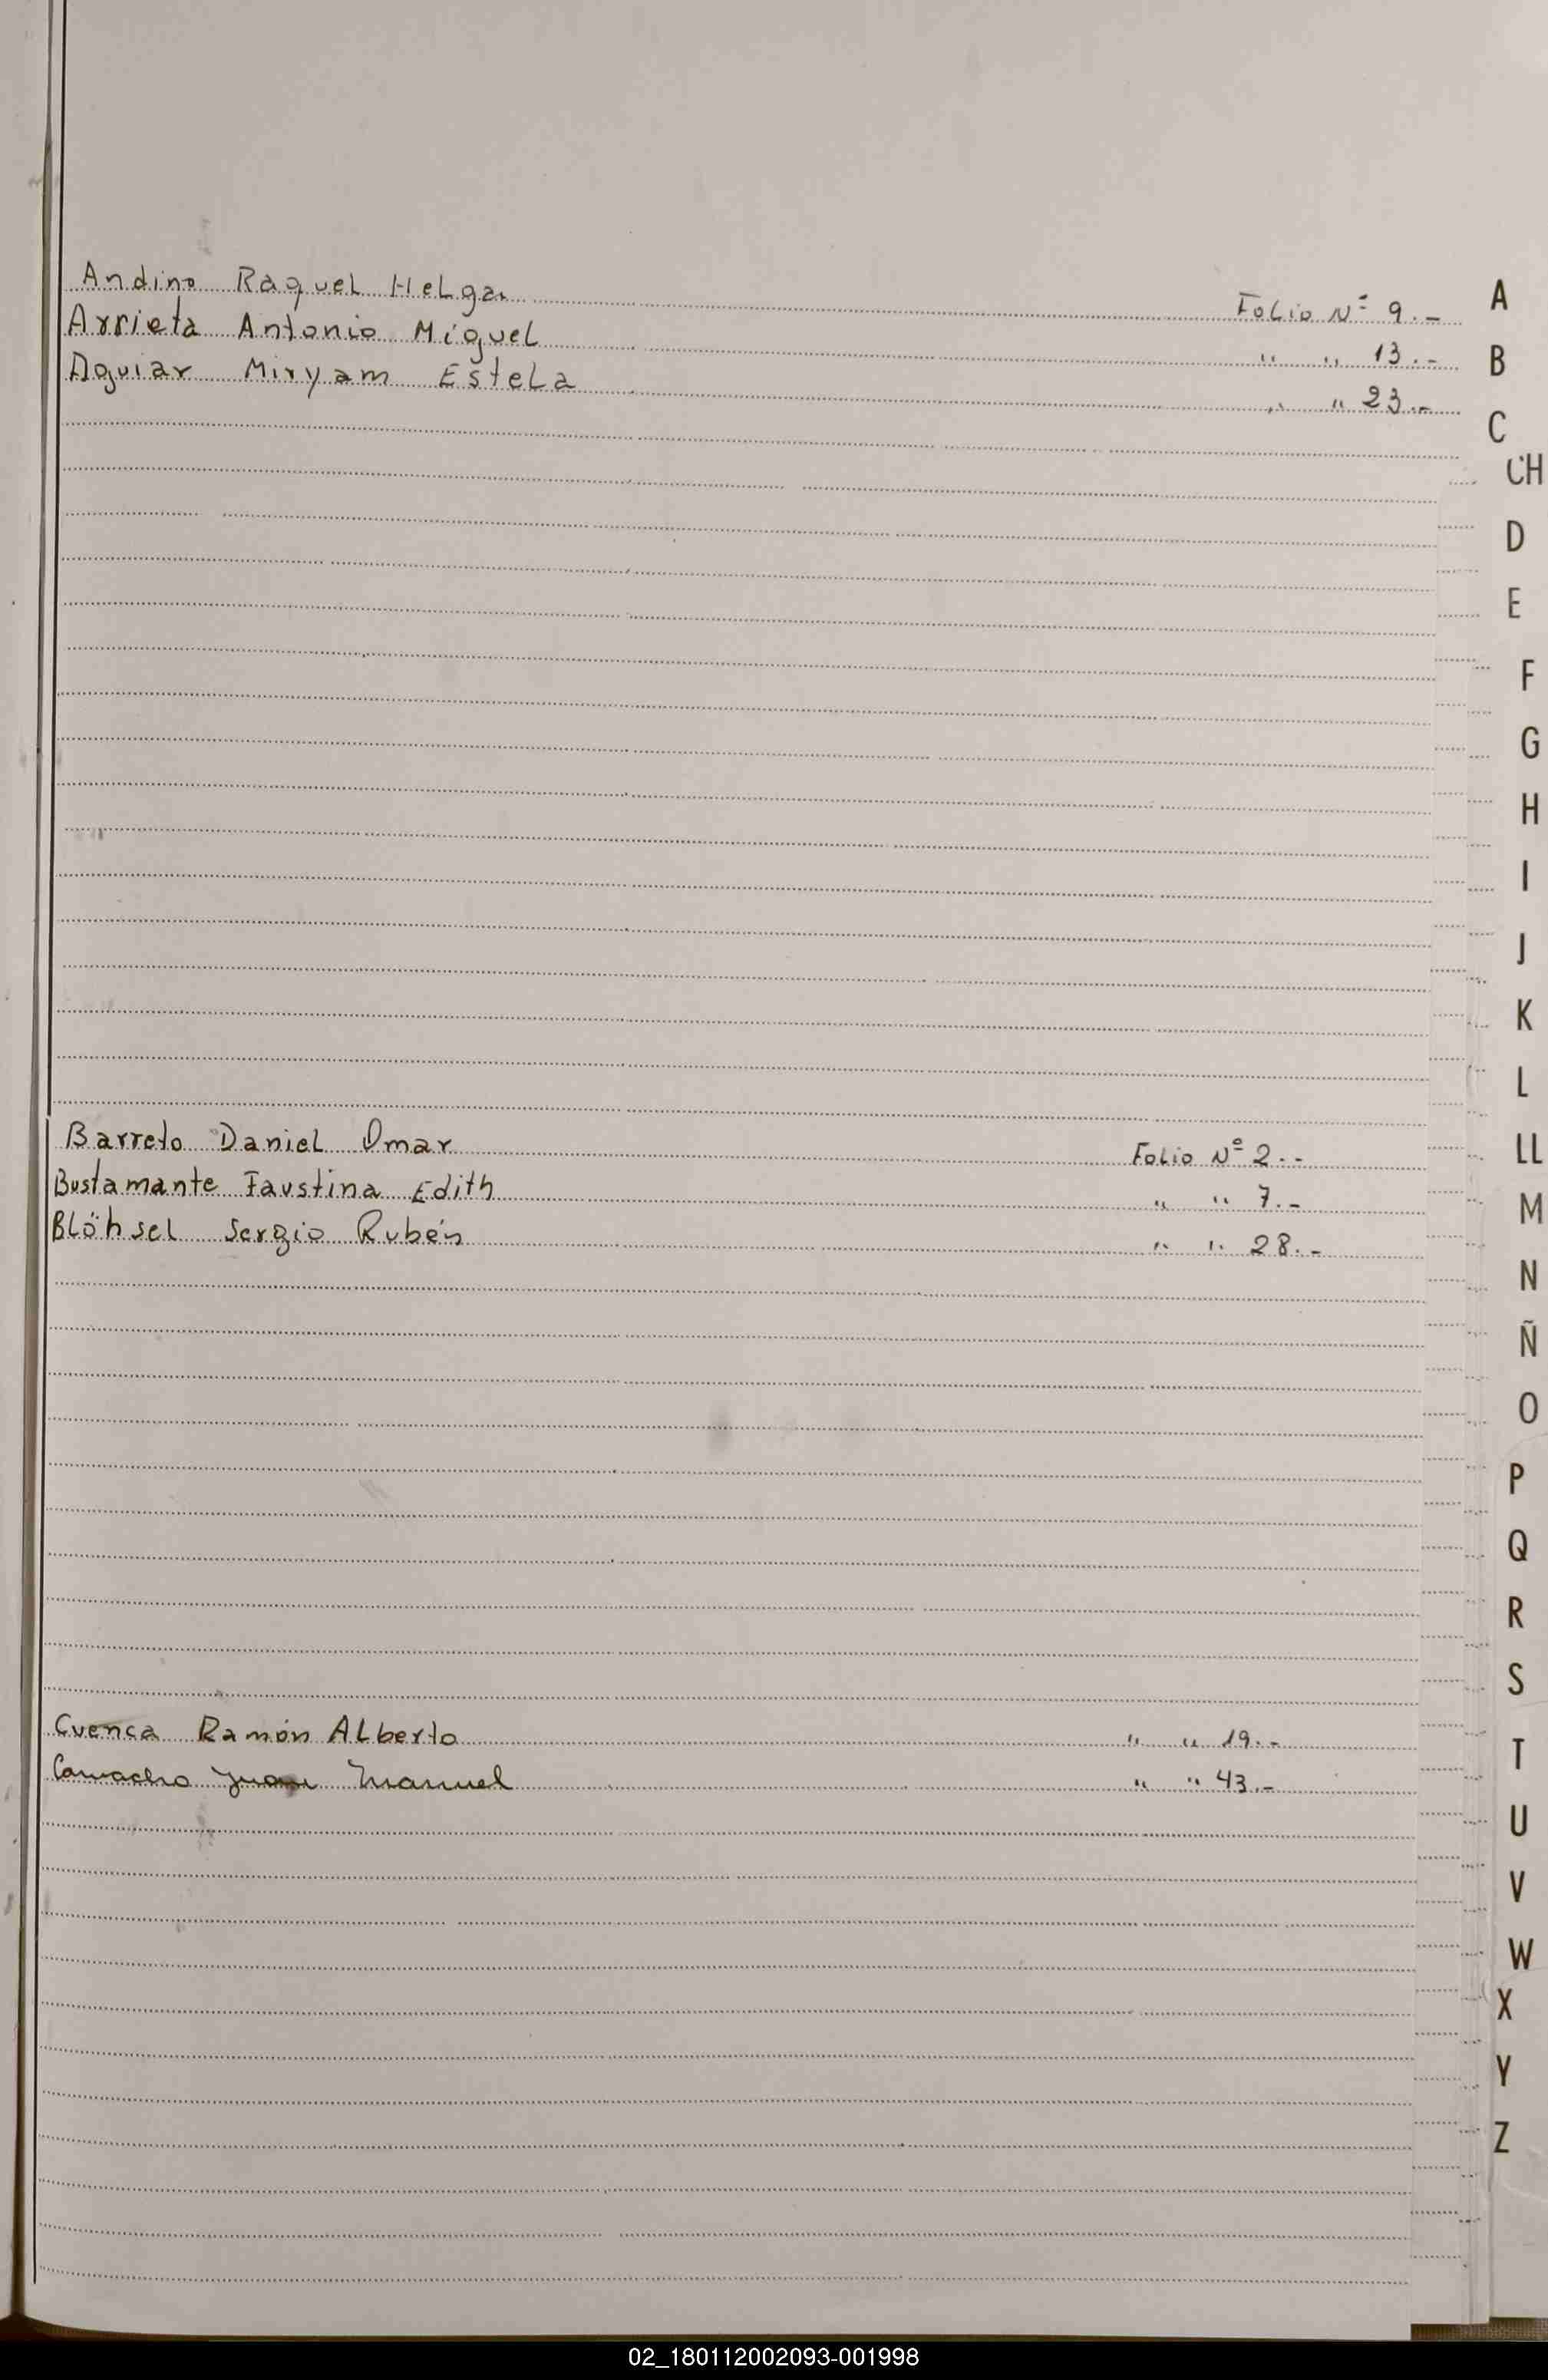 Andino Raquel Helga Folio Nº 9.-
Arrieta Antonio Miguel " " 13.-
Aguiar Miryam Estela " " 23.-
Barreto Daniel Omar Folio Nº 2.-
Bustamante Faustina Edith " " 7.-
Blöhsel Sergio Rubén " " 28.-
Cuenca Ramón Alberto " " 19.-
Camacho Juan Manuel " " 43.-
A
B
C
CH
D
E
F
G
H
I
J
K
L
LL
M
N
Ñ
O
P
Q
R
S
T
U
V
W
X
Y
Z
02_180112002093-001998